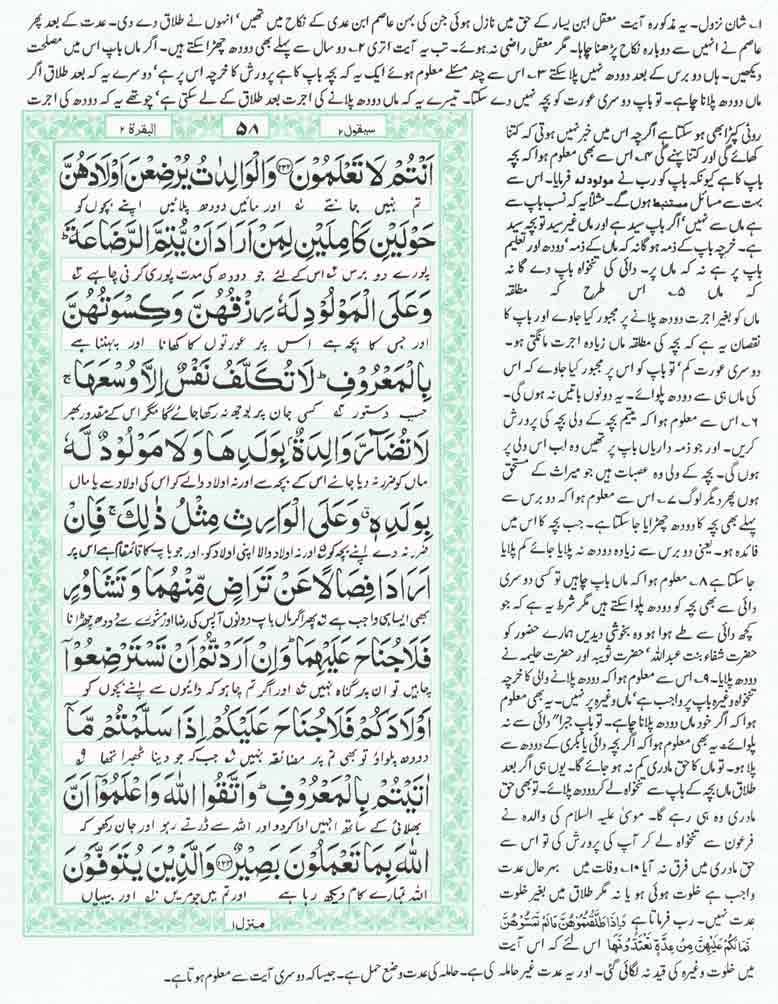 ۱؎ شان نزول۔ یہ مذکورہ آیت معقل ابن یسار کے حق میں نازل ہوئی جن کی بہن عاصم ابن عدی کے نکاح میں تھیں' انہوں نے طلاق دے دی۔ عدت کے بعد پھر
عاصم نے انہیں سے دوبارہ نکاح پڑھنا چاہا۔ مگر معقل راضی نہ ہوئے۔ تب یہ آیت اتری ۲؎ دو سال سے پہلے بھی دودھ چھڑا سکتے ہیں۔ اگر ماں باپ اس میں مصلحت
دیکھیں۔ ہاں دو برس کے بعد دودھ نہیں پلا سکتے ۳؎ اس سے چند مسئلے معلوم ہوئے ایک یہ کہ بچہ باپ کا ہے پرورش کا خرچہ اس پر ہے' دوسرے یہ کہ بعد طلاق اگر
ماں دودھ پلانا چاہے۔ تو باپ دوسری عورت کو بچہ نہیں دے سکتا۔ تیسرے یہ کہ ماں باپ دودھ پلانے کی اجرت بعد طلاق کے لے سکتی ہے' چوتھے یہ کہ دودھ کی اجرت
سیقول ۲
۵۸
البقرۃ ۲
اَنْتُمْ لَا تَعْلَمُوْنَ ﴿۲۳۲﴾ وَالْوَالِدٰتُ يُرْضِعْنَ اَوْلَادَهُنَّ
تم نہیں جانتے اور مائیں دودھ پلائیں اپنے بچوں کو
حَوْلَيْنِ كَامِلَيْنِ لِمَنْ اَرَادَ اَنْ يُّتِمَّ الرَّضَاعَةَ ؕ
پورے دو برس اس کے لئے جو دودھ کی مدت پوری کرنی چاہے
وَعَلَى الْمَوْلُوْدِ لَهٗ رِزْقُهُنَّ وَكِسْوَتُهُنَّ
اور جس کا بچہ ہے اس پر عورتوں کا کھانا اور پہننا ہے
بِالْمَعْرُوْفِ ؕ لَا تُكَلَّفُ نَفْسٌ اِلَّا وُسْعَهَا ۚ
حسب دستور کسی جان پر بوجھ نہ رکھا جائے گا مگر اس کے مقدور بھر
لَا تُضَآرَّ وَالِدَةٌۢ بِوَلَدِهَا وَلَا مَوْلُوْدٌ لَّهٗ
ماں کو ضرر نہ دیا جائے اس کے بچہ سے اور نہ اولاد والے کو اس کی اولاد سے یا ماں
بِوَلَدِهٖ ۗ وَعَلَى الْوَارِثِ مِثْلُ ذٰلِكَ ۚ فَاِنْ
ضرر نہ دے اپنے بچہ کو اور نہ اولاد والا اپنی اولاد کو۔ اور جو باپ کا قائم مقام ہے اس پر
اَرَادَا فِصَالًا عَنْ تَرَاضٍ مِّنْهُمَا وَتَشَاوُرٍ
بھی ایسا ہی واجب ہے پھر اگر ماں باپ دونوں آپس کی رضا اور مشورے سے دودھ چھڑانا
فَلَا جُنَاحَ عَلَيْهِمَا ؕ وَاِنْ اَرَدْتُّمْ اَنْ تَسْتَرْضِعُوْٓا
چاہیں تو ان پر گناہ نہیں اور اگر تم چاہو کہ دائیوں سے اپنے بچوں کو
اَوْلَادَكُمْ فَلَا جُنَاحَ عَلَيْكُمْ اِذَا سَلَّمْتُمْ مَّآ
دودھ پلواؤ تو بھی تم پر مضائقہ نہیں جب کہ جو دینا ٹھہرا تھا
اٰتَيْتُمْ بِالْمَعْرُوْفِ ؕ وَاتَّقُوا اللّٰهَ وَاعْلَمُوْٓا اَنَّ
بھلائی کے ساتھ انہیں ادا کر دو اور اللہ سے ڈرتے رہو اور جان رکھو کہ
اللّٰهَ بِمَا تَعْمَلُوْنَ بَصِيْرٌ ﴿۲۳۳﴾ وَالَّذِيْنَ يُتَوَفَّوْنَ
اللہ تمہارے کام دیکھ رہا ہے اور تم میں جو مریں اور بیبیاں
منزل ۱
روٹی کپڑا بھی ہو سکتا ہے اگرچہ اس میں خبر نہیں ہوتی کہ کتنا
کھائے گی اور کتنا پہنے گی ۴؎ اس سے بھی معلوم ہوا کہ بچہ
باپ کا ہے کیونکہ باپ کو رب نے مولود لہ فرمایا۔ اس سے
بہت سے مسائل مستنبط ہوں گے۔ مثلاً یہ کہ نسب باپ سے
ہے ماں سے نہیں' اگر باپ سید ہے اور ماں غیر سید تو بچہ سید
ہے۔ خرچہ باپ کے ذمہ ہو گا نہ کہ ماں کے ذمہ' دودھ اور تعلیم
باپ پر ہے نہ کہ ماں پر۔ دائی کی تنخواہ باپ دے گا نہ
کہ ماں ۵؎ اس طرح کہ مطلقہ
ماں کو بغیر اجرت دودھ پلانے پر مجبور کیا جاوے اور باپ کا
نقصان یہ ہے کہ بچہ کی مطلقہ ماں زیادہ اجرت مانگتی ہو۔
دوسری عورت کم' تو باپ کو اس پر مجبور کیا جاوے کہ اس
کی ماں ہی سے دودھ پلوائے۔ یہ دونوں باتیں نہ ہوں گی۔
۶؎ اس سے معلوم ہوا کہ یتیم بچہ کے ولی بچہ کی پرورش
کریں۔ اور جو ذمہ داریاں باپ پر تھیں وہ اب اس ولی پر
ہوں گی۔ بچہ کے ولی وہ عصبات ہیں جو میراث کے مستحق
ہوں پھر دیگر لوگ ۷؎ اس سے معلوم ہوا کہ دو برس سے
پہلے بھی بچہ کا دودھ چھڑایا جا سکتا ہے۔ جب بچہ کا اس میں
فائدہ ہو۔ یعنی دو برس سے زیادہ دودھ نہ پلایا جائے کم پلایا
جا سکتا ہے ۸؎ معلوم ہوا کہ ماں باپ چاہیں تو کسی دوسری
دائی سے بھی بچہ کو دودھ پلوا سکتے ہیں مگر شرط یہ ہے کہ جو
کچھ دائی سے طے ہوا ہو وہ بخوشی دیدیں ہمارے حضور کو
حضرت شفاء بنت عبداللہ' حضرت ثویبہ اور حضرت حلیمہ نے
دودھ پلایا۔ ۹؎ اس سے معلوم ہوا کہ دودھ پلانے والی کا خرچہ
تنخواہ وغیرہ باپ پر واجب ہے' ماں وغیرہ پر نہیں۔ یہ بھی معلوم
ہوا کہ اگر خود ماں دودھ پلانا چاہے۔ تو باپ جبراً" دائی سے نہ
پلوائے یہ بھی معلوم ہوا کہ اگر بچہ دائی یا بکری کے دودھ سے
پلا ہو۔ تو ماں کا حق مادری کم نہ ہو جائے گا۔ یوں ہی اگر بعد
طلاق ماں بچہ کے باپ سے تنخواہ لے کر دودھ پلائے۔ تو بھی حق
مادری وہ ہی رہے گا۔ موسیٰ علیہ السلام کی والدہ نے
فرعون سے تنخواہ لے کر آپ کی پرورش کی تو اس سے
حق مادری میں فرق نہ آیا ۱۰؎ وفات میں بہرحال عدت
واجب ہے خلوت ہوئی ہو یا نہ مگر طلاق میں بغیر خلوت
عدت نہیں۔ رب فرماتا ہے
فَمَا لَكُمْ عَلَيْهِنَّ مِنْ عِدَّةٍ تَعْتَدُّوْنَهَا اس لئے کہ اس آیت
میں خلوت وغیرہ کی قید نہ لگائی گئی۔ اور یہ عدت غیر حاملہ کی ہے۔ حاملہ کی عدت وضع حمل ہے۔ جیسا کہ دوسری آیت سے معلوم ہوتا ہے۔